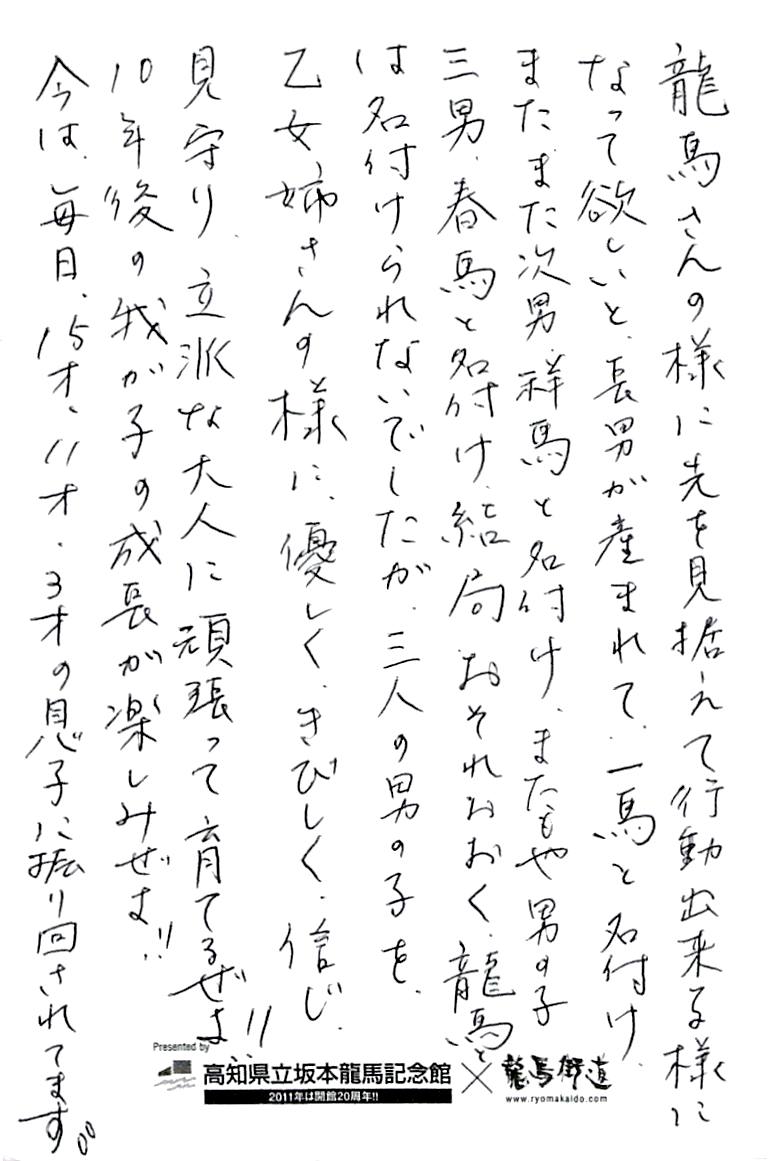 龍馬さんの様に先を見据えて行動出来る様に
なって欲しいと、長男が産まれて、一馬と名付け、
またまた次男、祥馬と名付け、またもや男の子
三男、春馬と名付け、結局おそれおおく、龍馬と
は名付けられないでしたが、三人の男の子を、
乙女姉さんの様に、優しく、きびしく、信じ、
見守り、立派な大人に頑張って育てるぜよ!!
10年後の我が子の成長が楽しみぜよ!!
今は、毎日、15才、11才、3才の息子に振り回されてます。
Presented by
高知県立坂本龍馬記念館
2011年は開館20周年!!
×
龍馬街道
www.ryomakaido.com